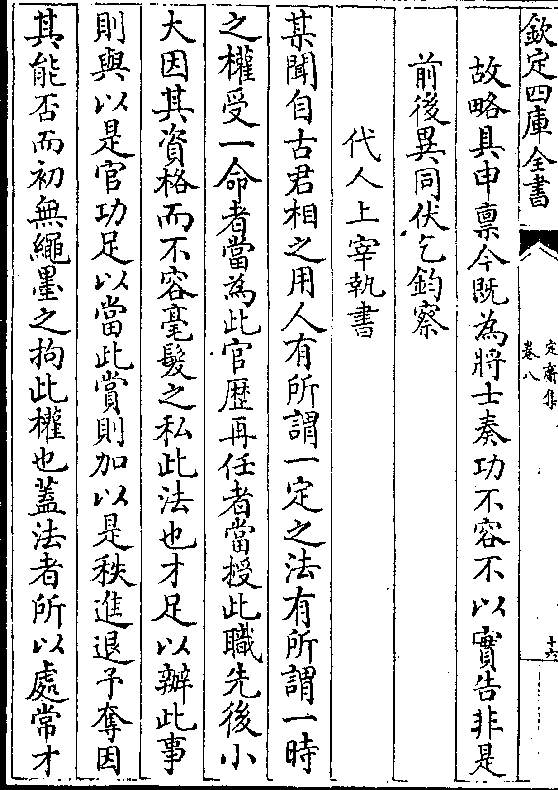 欽定四庫全書
定齋集
卷八
十六
故略具申禀今既為將士奏功不容不以實告非是
前後異同伏乞鈞察
代人上宰執書
某聞自古君相之用人有所謂一定之法有所謂一時
之權受一命者當為此官歷再任者當授此職先後小
大因其資格而不容毫髮之私此法也才足以辦此事
則與以是官功足以當此賞則加以是秩進退予奪因
其能否而初無繩墨之拘此權也蓋法者所以處常才